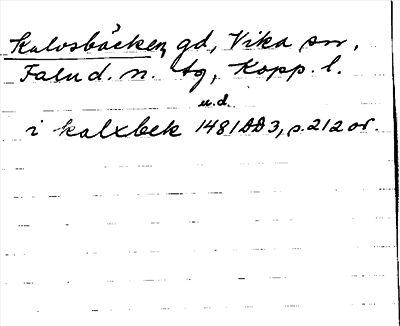 Kalvsbäcken, gd, Vika sn,
Falu d. n. tg, Kopp. l.
u.d.
i kalxbek 1481 DD 3, s. 212 or.